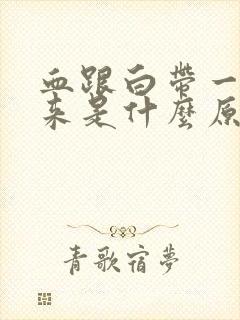 血跟白帶一
来是什麼原
青歌宿夢